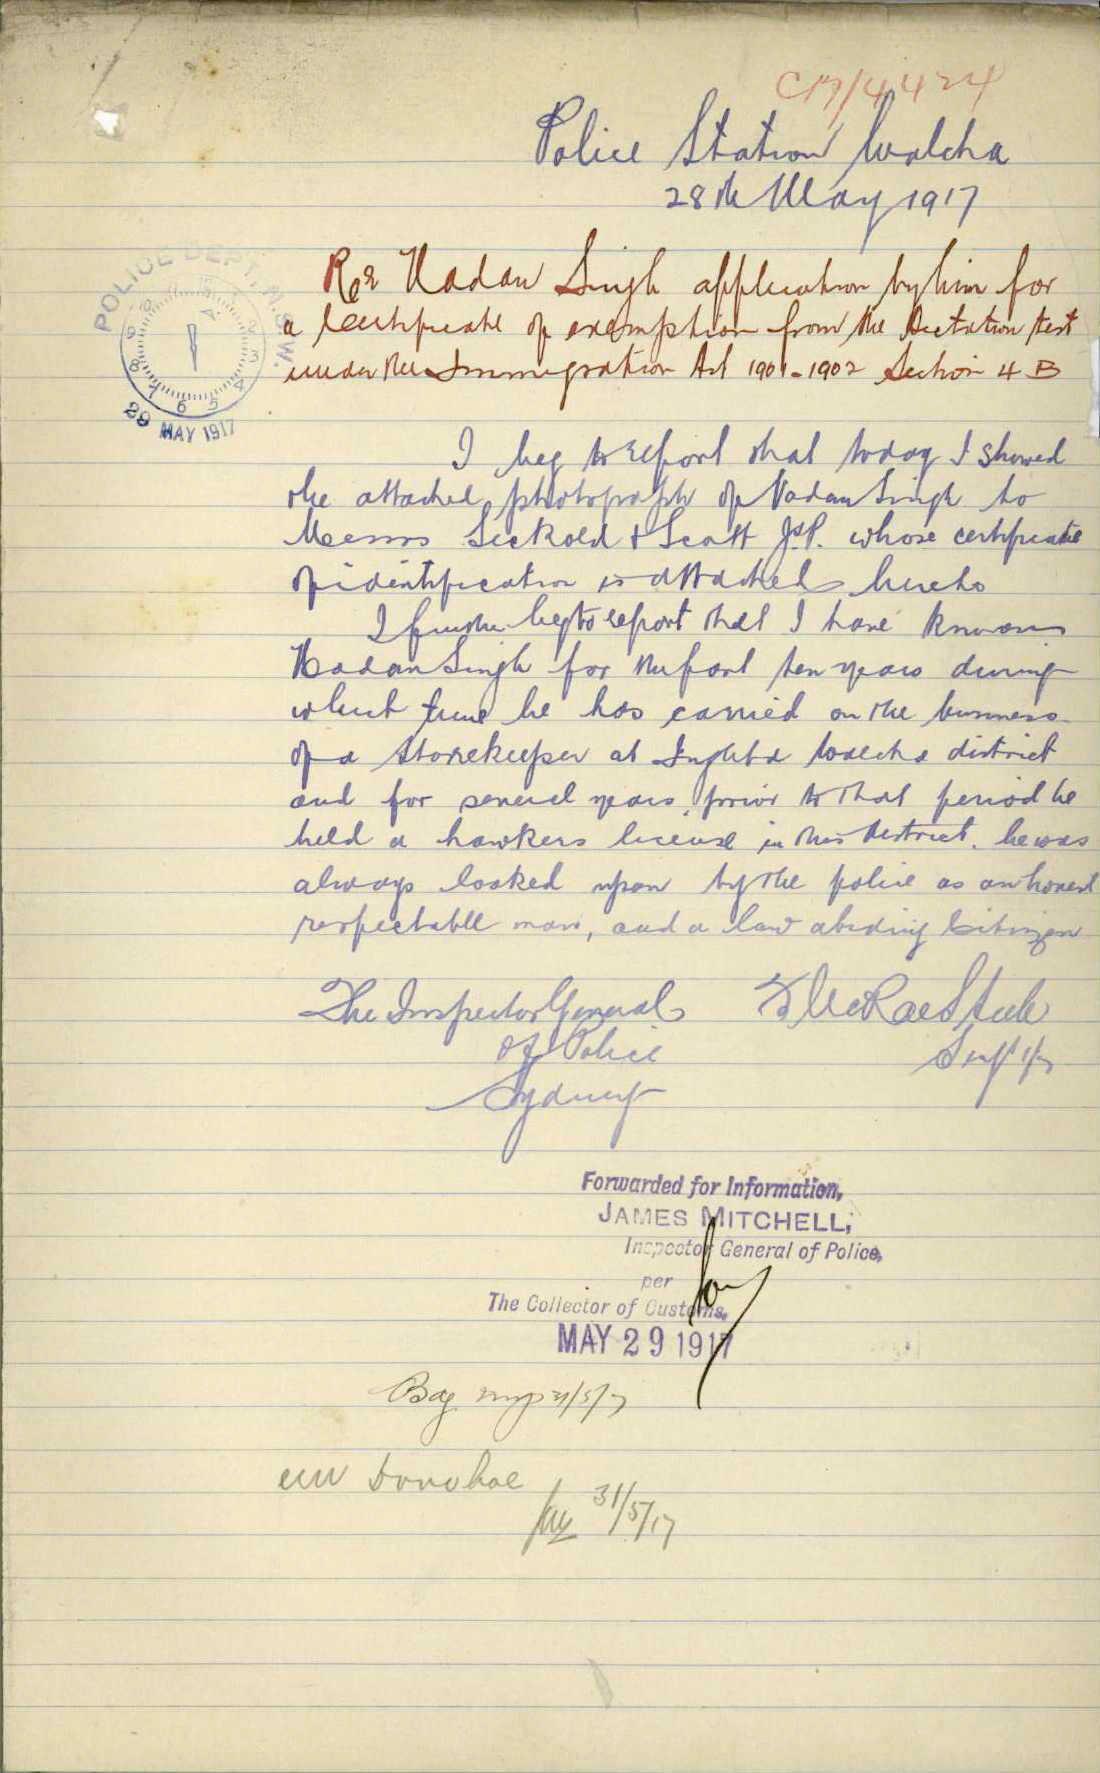 C17/4424
Police Station Walcha
28th May 1917
POLICE DEPT. N.S.W.
29 MAY 1917
Re Nadan Singh application by him for
a Certificate of exemption from the Dictation test
under the Immigration Act 1901-1902 Section 4 B
I beg to report that today I showed
the attached photograph of Nadan Singh to
Messrs Sickold & Scott Js.P. whose certificate
of identification is attached hereto
I further beg to report that I have known
Nadan Singh for the past ten years during
which time he has carried on the business
of a storekeeper at Ingleba Walcha district
and for several years prior to that period he
held a hawkers license in this District. he was
always looked upon by the police as an honest
respectable man, and a law abiding Citizen
The Inspector General
of Police
Sydney
McRae
Sergt 1/c
Forwarded for Information,
JAMES MITCHELL,
Inspector General of Police,
per
The Collector of Customs,
MAY 29 1917
31/5/17
Mr Donohoe
31/5/17